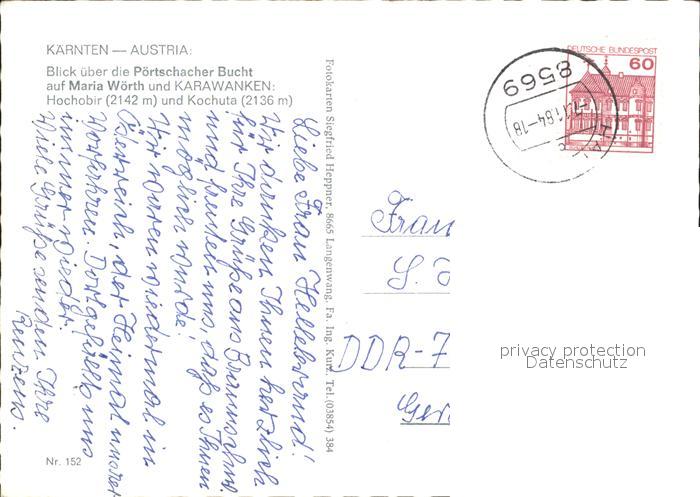 KÄRNTEN — AUSTRIA:
Blick über die Pörtschacher Bucht
auf Maria Wörth und KARAWANKEN:
Hochobir (2142 m) und Kochuta (2136 m)
Liebe Frau Hellebrand!
Wir danken Ihnen herzlich
für Ihre Grüße aus Braunschw.
und freuten uns, daß es Ihnen
möglich wurde!
Wir waren wiedermal in
Österreich, der Heimat unserer
Vorfahren. Dort gefällt uns
immer wieder.
Viele Grüße senden Ihre
Nr. 152
Fotokarten Siegfried Heppner, 8665 Langenwang, Fa. Ing. Kurz, Tel. (03854) 384
DEUTSCHE BUNDESPOST
60
8569
-7.11.84-18
Frau
S.
DDR-7
Ger
privacy protection
Datenschutz